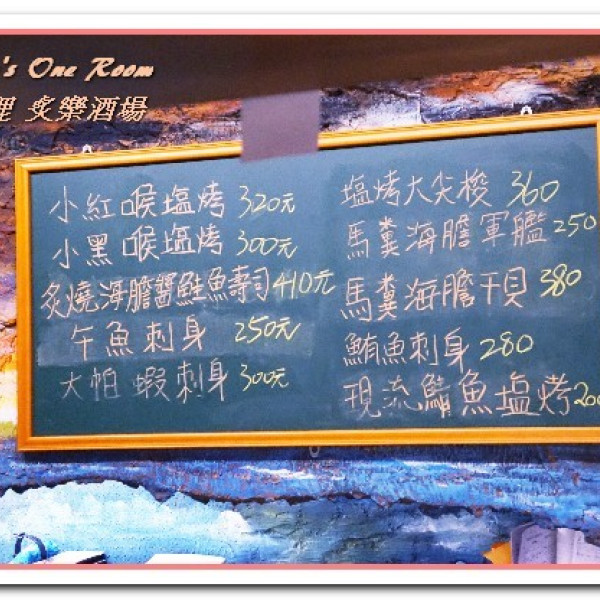 's One Room
炙樂酒場
小紅喉塩烤 320元
小黑喉塩烤 300元
炙燒海膽醬鮭魚壽司 410元
午魚刺身 250元
大帕蝦刺身 300元
塩烤大尖梭 360
馬糞海膽軍艦 250
馬糞海膽干貝 380
鮪魚刺身 280
現流鯕魚塩烤 200